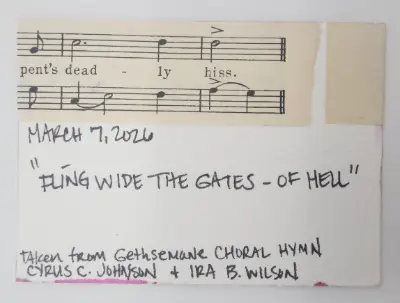 pent's dead - ly hiss.
MARCH 7, 2026
"FLING WIDE THE GATES - OF HELL"
taken from Gethsemane CHORAL HYMN
CYRUS C. JOHNSON + IRA B. WILSON